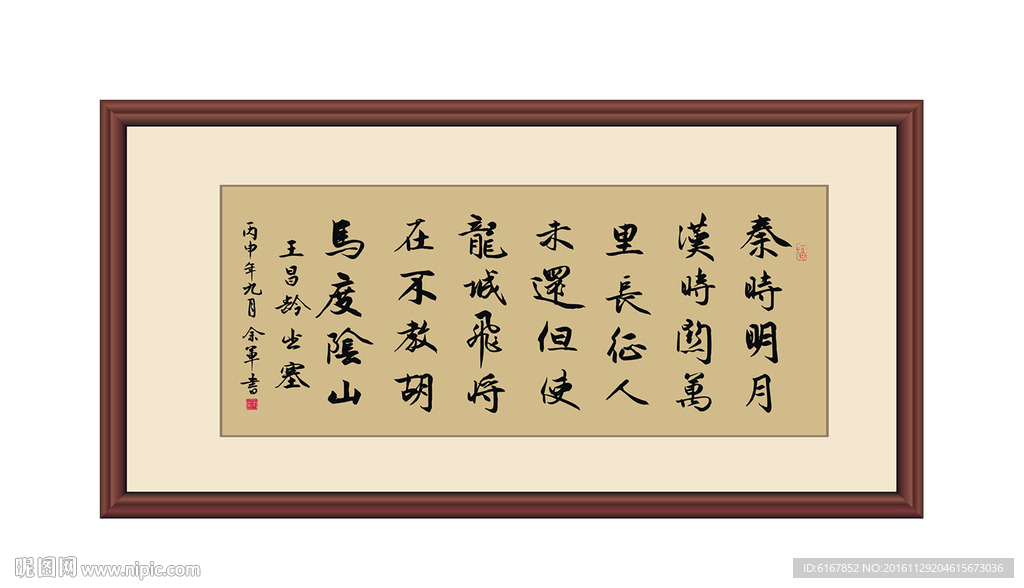 秦時明月
漢時關萬
里長征人
未還但使
龍城飛将
在不教胡
馬度陰山
王昌龄出塞
丙申年九月 余军书
昵图网 www.nipic.com
ID:6167852 NO:20161129204615673036